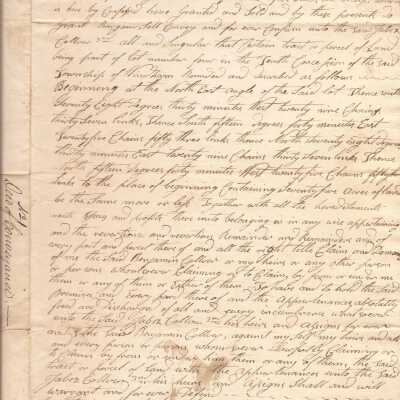 a ... by Confessed have Granted and Sold and by these presents do
Grant Bargain Sell Convey and for ever Confirm unto the said Jabez
Collver Jnr all and Singular that Certain tract or parcel of Land
being part of lot number four in the Tenth Concession of the said
Township of Windham Numbered and described as follows
Beginning at the North East angle of the said lot Thence South
Seventy Eight degrees thirty minutes West twenty nine Chains
thirty Seven links Thence South fifteen degrees forty minutes East
Twentyfive Chains fifty three links thence North Seventy Eight degrees
thirty minutes East twenty nine Chains thirty Seven links Thence
North fifteen degrees forty minutes West twenty five Chains fifty
links to the place of beginning Containing Seventy five acres of land
be the Same more or less Together with all the heraditaments
and the reversions and reversions Remainder and Remainders and of
every part and parcel thereof and all the right title Claim and
of me the Said Benjamin Collver or my heirs or any other person
or persons whomsoever Claiming or to Claim, by from or under me
them or any of them or Either of them To have and to hold the Said
Premises and Every part thereof and the Appurtenances absolutely
free and discharged of all and every incumbrance whatsoever
unto the Said Jabez Collver Jnr his heirs and Assigns for ever
and I the Said Benjamin Collver against my self my heirs and all
and every person or persons whomsoever Lawfully Claiming or
to Claim by from or under him them or any of them, the Said
tract or parcel of Land with the Appurtenances unto the Said
Jabez Collver Jnr his heirs and Assigns Shall and will
warrant and for ever defend
No 1
Deed of Conveyance